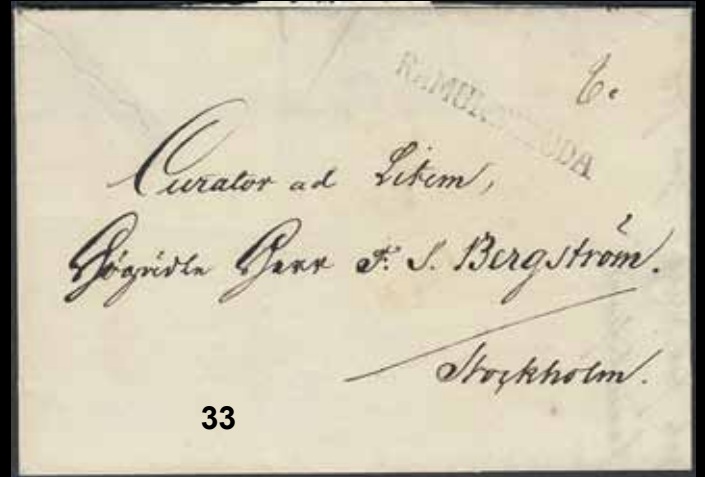 RAMUNDEBODA
6.
Curator ad Litem,
Högädle Herr F. S. Bergström.
Stockholm.
33